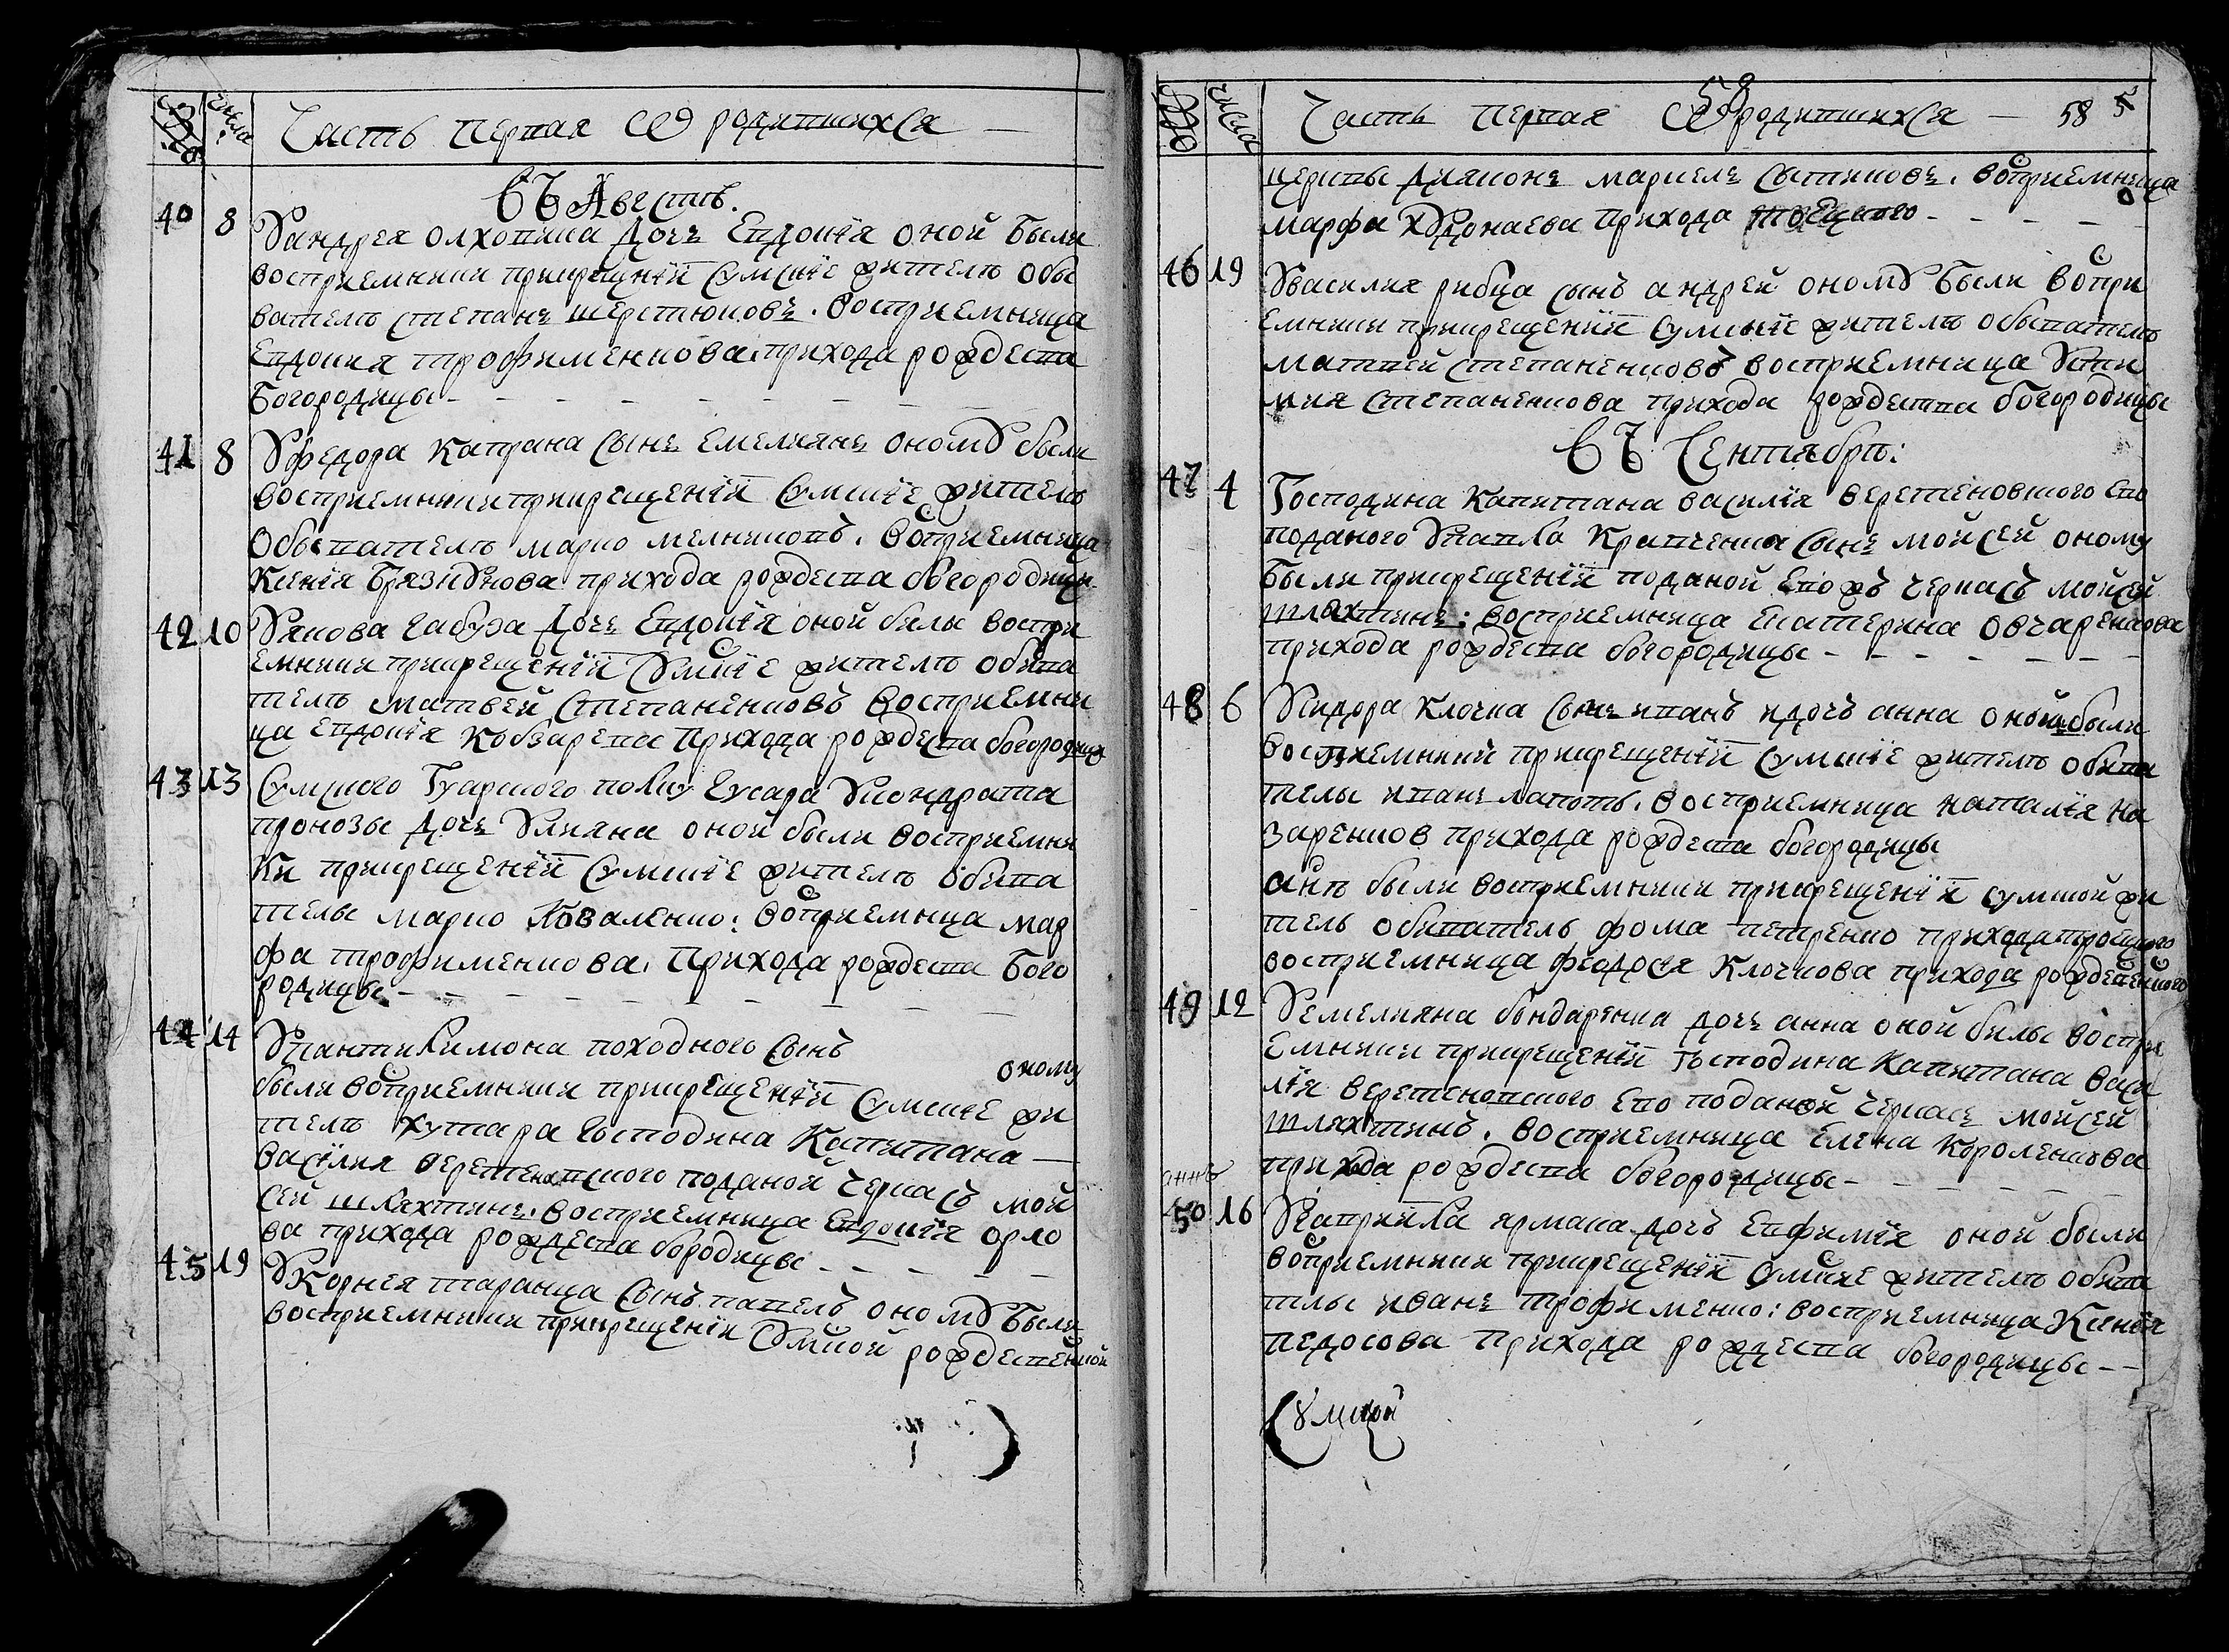 числа
Часть первая о родившихся —
въ Августѣ.
40 8 Уандрея олховика дочь Евдокія оной были
восприемники прикрещеніи Сумскіе жители обы
ватель степанъ шерстюковъ. восприемница
Евдокия трофименкова прихода рождества
Богородицы - - - - - - - -
41 8 Уфедора Каправа сынъ емелиянъ оному были
восприемники прикрещеніи Сумскіе жители
Обыватель марко мелниковъ. воприемница
Ксенія прихода рождества богородицы
42 10 Уякова габуза дочь Евдокія оной были воспри
емники прикрещеніи Сумскіе жители обыва
тель матвей степаненковъ восприемни
ца Евдокія кобзарева прихода рождества богородицы
43 13 Сумского Гусарского полку гусара Укондрата
пронозы дочь Улияна оной были восприемни
ки прикрещеніи Сумскіе жители обыва
тель марко коваленко: воприемница мар
фа трофименкова. прихода рождества Бого
родицы - - - - - - - -
44 14 Упантилимона походного сынъ оному
были воприемники прикрещеніи Сумскіе жи
тель хутара господина Капитана —
василия веретеновского поданой черкасъ мой
сей шляхтинъ. восприемница Евдокія орло
ва прихода рождества богородицы - - - - -
45 19 Укорнея таранца сынъ павелъ оному были
восприемники прикрещеніи Сумской рождественской
числа
58
Часть первая о родившихся — 58 5
церквы дияконъ маркелъ сытниковъ. восприемница
марфа прихода троецкого - - - -
46 19 Увасилия рибца сынъ андрей оному были воспри
емники прикрещеніи Сумскіе жители обыватель
матвей степаненковъ восприемница
степаненкова прихода рождества богородицы
въ Сентябрѣ:
47 4 Господина Капитана василія веретеновского его
поданого Упавла кравченка сынъ мойсей оному
были прикрещеніи поданой его жъ черкасъ мойсей
шляхтинъ: восприемница екатерина овчаренкова
прихода рождества богородицы - - - - - -
48 6 Усидора клочка сынъ иванъ и дочь анна оной были
восприемники прикрещеніи Сумскіе жители обыва
телы иванъ лапоть. восприемница наталія на
заренков прихода рождества богородицы
аннѣ были восприемники прикрещеніи сумской жи
тель обыватель фома петренко прихода троецкого
восприемница феодосія клочкова прихода рождественского
49 12 Уемелияна бондаренка дочь анна оной были воспри
емники прикрещеніи господина Капитана васи
лія веретеновского его поданой черкасъ мойсей
шляхтинъ. восприемница Елена короленкова
прихода рождества богородицы - - - - -
аннѣ
50 16 Угаврийла ярмака дочь Евфимія оной были
воприемники прикрещеніи Сумские жители обыва
телы иванъ трофименко: восприемница Ксенія
федосова прихода рождества богородицы - -
Сумской